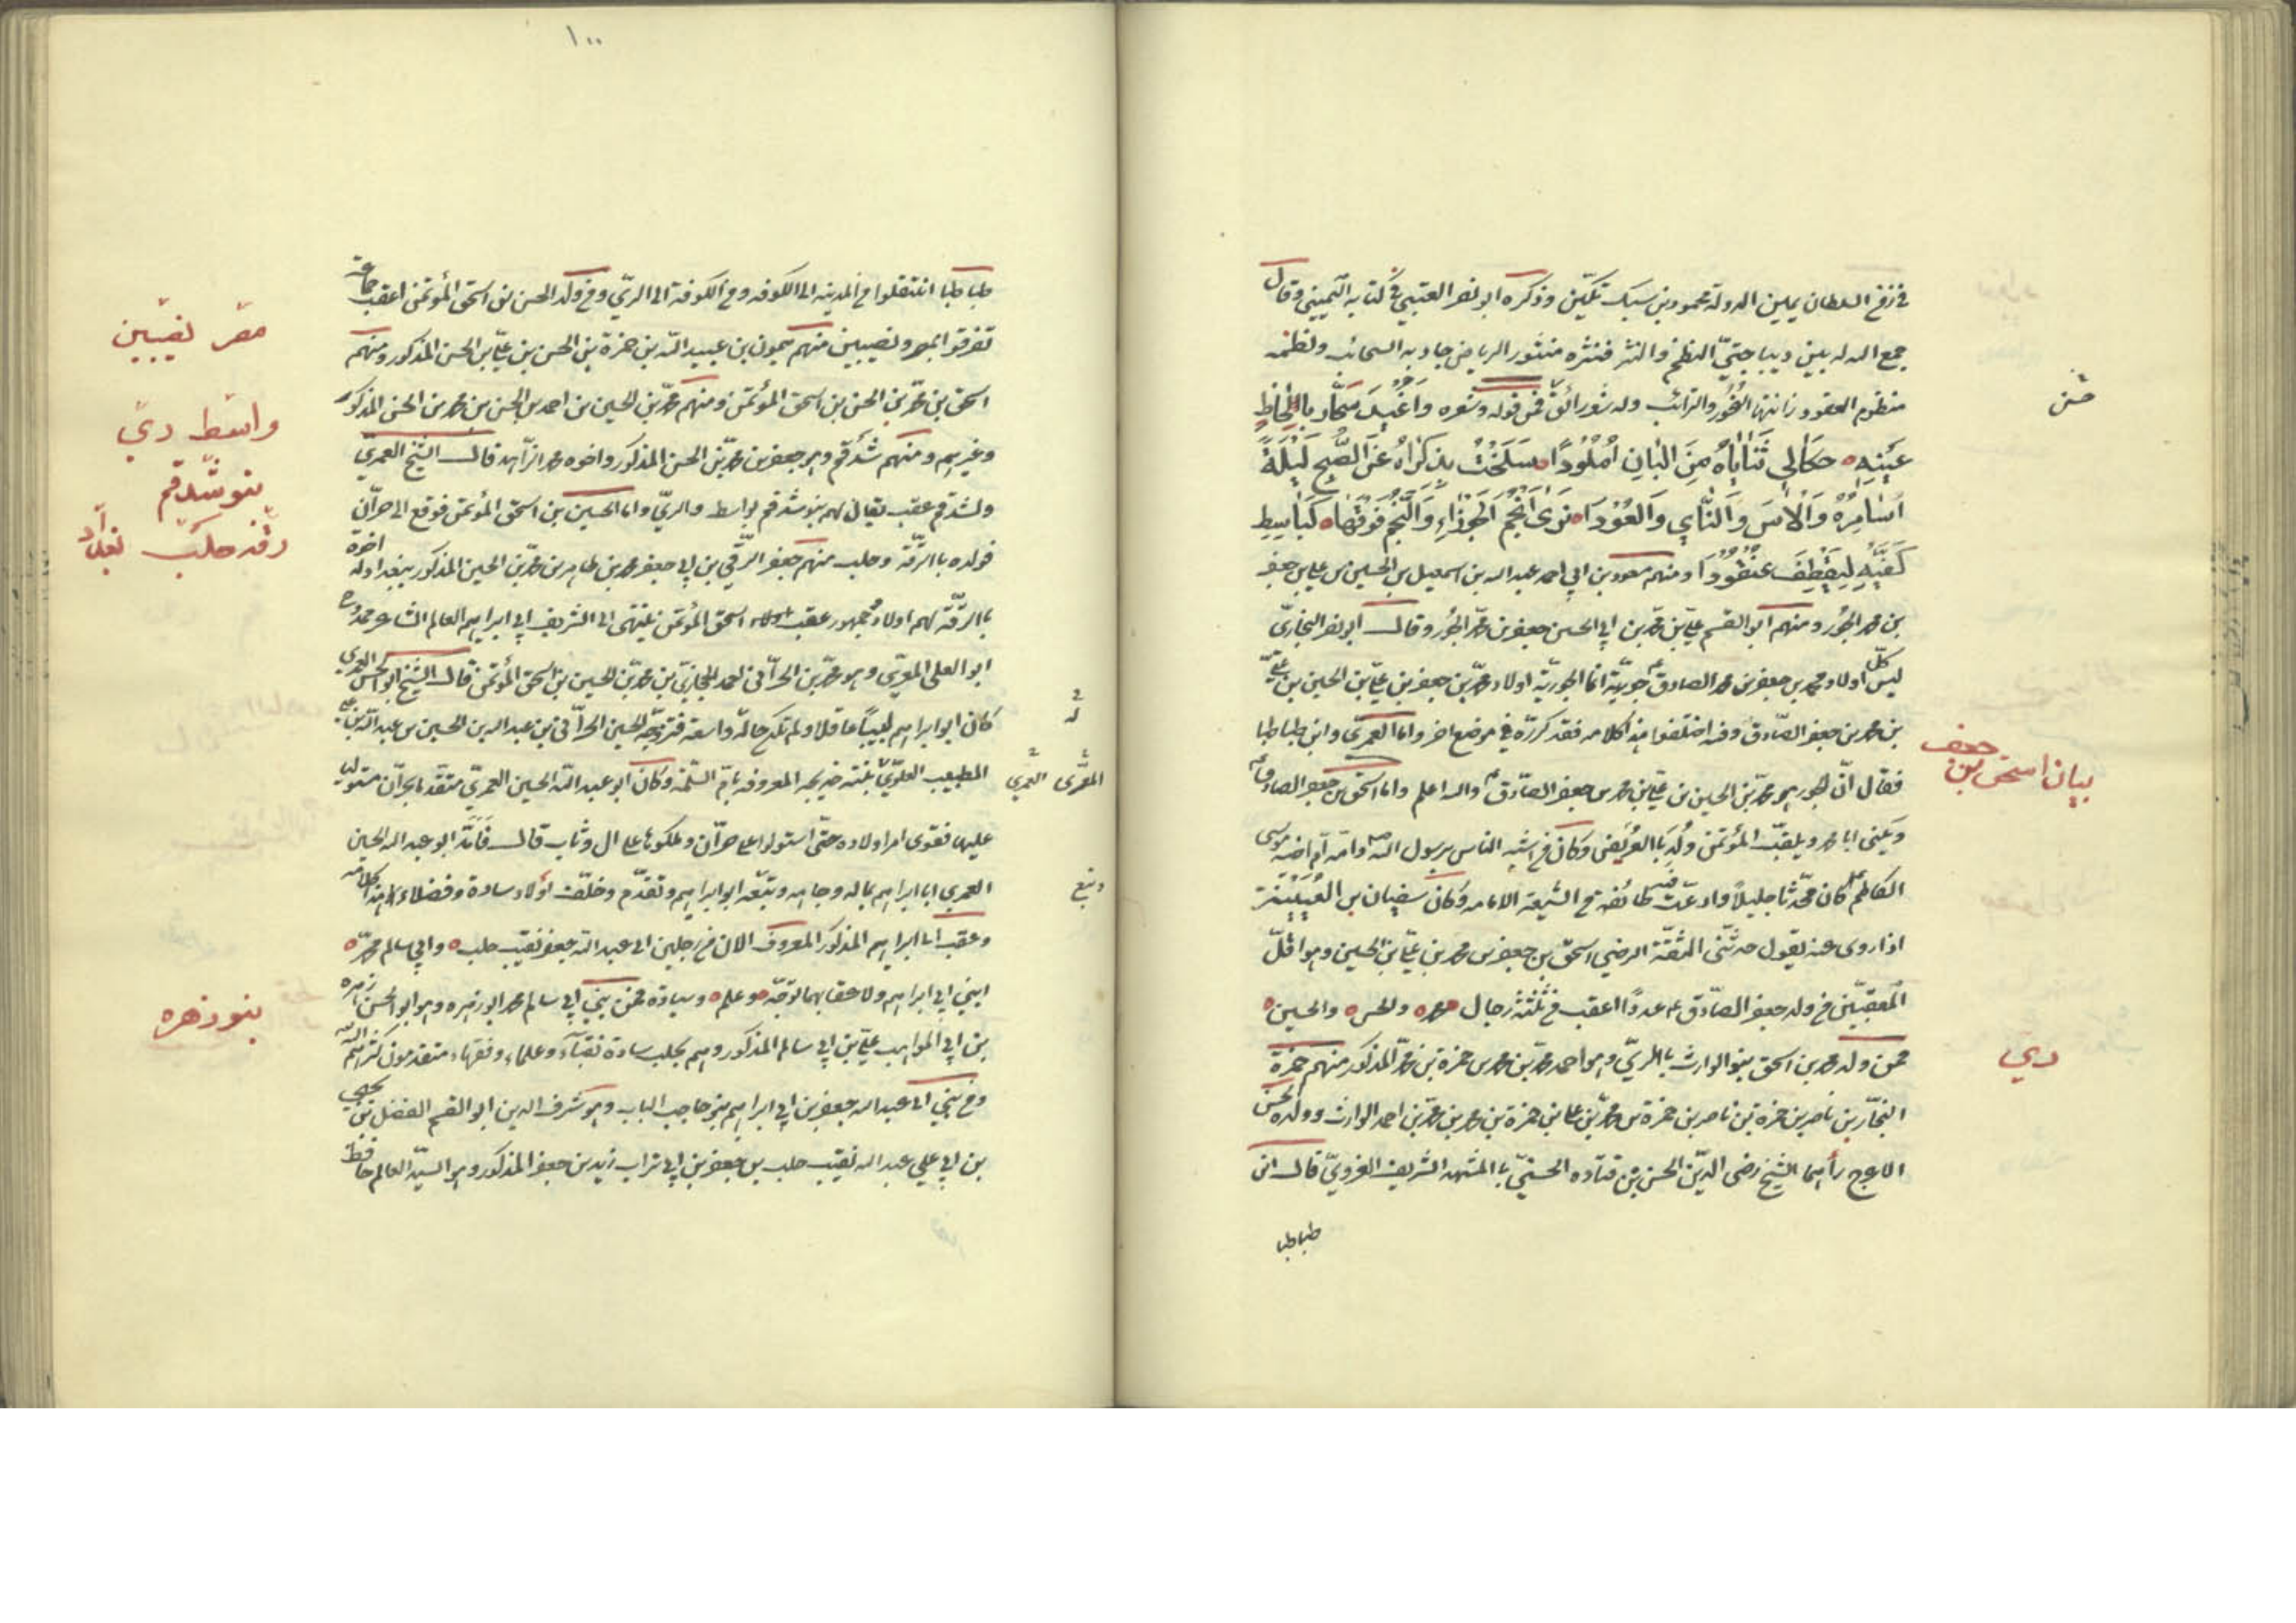 في زمن السلطان يمين الدولة محمود بن سبكتكين وذكره ابو نصر العتبي في كتابه اليميني وقال
جمع الله له بين ديباجتي النظم والنثر فنثره منثور الرياض جادته السحائب ونظمه
منظوم العقود زانتها النحور والترائب وله شعر رائق فمن قوله وشعره واغيد سحار بالحاظ
حسن
عينه حكى لي ثناياه من البان املودا سلخت بذكراه عن الصبح ليلة
اسامره والاس والناي والعودا ترى انجم الجوزاء والنجم فوقها كباسط
كفيه ليقطف عنقودا ومنهم بن ابي احمد عبد الله بن اسمعيل بن الحسين بن علي بن جعفر
بن محمد الجور ومنهم ابو القسم علي بن محمد بن ابي الحسن جعفر بن محمد الجور وقال ابو نصر البخاري
ليس كل اولاد محمد بن جعفر بن محمد الصادق جورية انما الجورية اولاد محمد بن جعفر بن علي بن الحسين بن علي
بن محمد بن جعفر الصادق وقد اختلفوا هذا كلامه فقد كرره في موضع اخر واما العمري وابن طباطبا
بيان اسحق بن جعفر
فقال ان الجور هو محمد بن الحسين بن علي بن محمد بن جعفر الصادق والله اعلم واما اسحق بن جعفر الصادق
ويكنى ابا محمد ويلقب المؤتمن ولد بالعريض وكان من اشبه الناس برسول الله وامه ام اخيه موسى
الكاظم كان محدثا جليلا وادعت فيه طائفة من الشيعة الامامه وكان سفيان بن العيينة
اذا روى عنه يقول حدثني الثقة الرضي اسحق بن جعفر بن محمد بن علي بن الحسين وهو اقل
المعقبين من ولد جعفر الصادق عددا اعقب من ثلثة رجال محمد والحسن والحسين
ري
فمن ولد محمد بن اسحق بنو الوارث بالري وهو احمد بن محمد بن حمزة بن محمد المذكور منهم حمزة
النجار بن ناصر بن حمزة بن ناصر بن حمزة بن محمد بن علي بن حمزة بن محمد بن محمد بن احمد الوارث وولده الحسن
الاعرج رأهما الشيخ رضى الدين الحسن بن قتاده الحسني بالمشهد الشريف الغروي قال ان
طباطبا
١٠٠
طباطبا انتقلوا من المدينه الى الكوفه ومن الكوفة الى الري ومن ولد الحسن بن اسحق المؤتمن اعقب جماعة
مصر نصيبين
تفرقوا بمصر ونصيبين منهم ميمون بن عبيد الله بن حمزة بن الحسن بن علي بن الحسن المذكور ومنهم
اسحق بن محمد بن الحسن بن اسحق المؤتمن ومنهم محمد بن الحسين بن احمد بن الحسن بن محمد بن الحسن المذكور
واسط ري
وغيرهم ومنهم شدقم وهو جعفر بن محمد بن الحسن المذكور واخوه محمد الزاهد قال الشيخ العمري
بنو شدقم
ولشدقم عقب يقال لهم بنو شدقم بواسط والري واما الحسين بن اسحق المؤتمن فوقع الى حران
رقه حلب بغداد
فولده بالرقة وحلب منهم جعفر الرقي بن ابي جعفر محمد بن طاهر بن محمد بن الحسين المذكور ببغداد له اخوة
بالرقة لهم اولاد وجمهور عقب اسحق المؤتمن ينتهى الى الشريف ابي ابراهيم العالم الشاعر ممدوح
ابو العلى المعري وهو محمد بن الحراني احمد الحجازي بن محمد بن الحسين بن اسحق المؤتمن قال الشيخ ابو الحسن العمري
كان ابو ابراهيم لبيبا عاقلا ولم تكن حاله واسعة فزوجه الحسين الحراني بن عبد الله بن الحسين بن عبد الله بن علي
له
الطبيب العلوي بنته خديجه المعروفه بام السلمة وكان ابو عبد الله الحسين العمري متقدما بحران مستوليا
المعرى العمري
عليها فقوى امر اولاده حتى استولوا على حران وملكوها على ال وثاب قال فامد ابو عبد الله الحسين
العمري ابا ابراهيم بماله وجاهه وتبعه ابو ابراهيم وتقدم وخلف اولاد سادة وفضلاء هذا كلامه
ونبع
وعقب ابا ابراهيم المذكور المعروف الان من رجلين ابي عبد الله جعفر نقيب حلب وابي سالم محمد
ابني ابي ابراهيم ولاعقابهما توجه وعلم وسيادة فمن بني ابي سالم محمد ابو زهره وهو ابو الحسن زهره
بنو زهره
بن ابي المواهب علي بن ابي سالم المذكور وهم بحلب سادة نقباء وعلماء وفقهاء متقدمون كثرهم الله
ومن بني ابي عبد الله جعفر بن ابي ابراهيم بنو حاجب الباب وهو شرف الدين ابو القسم الفضل بن يحيى
بن ابي علي عبد الله نقيب حلب بن جعفر بن ابي تراب زيد بن جعفر المذكور وهو السيد العالم حافظ